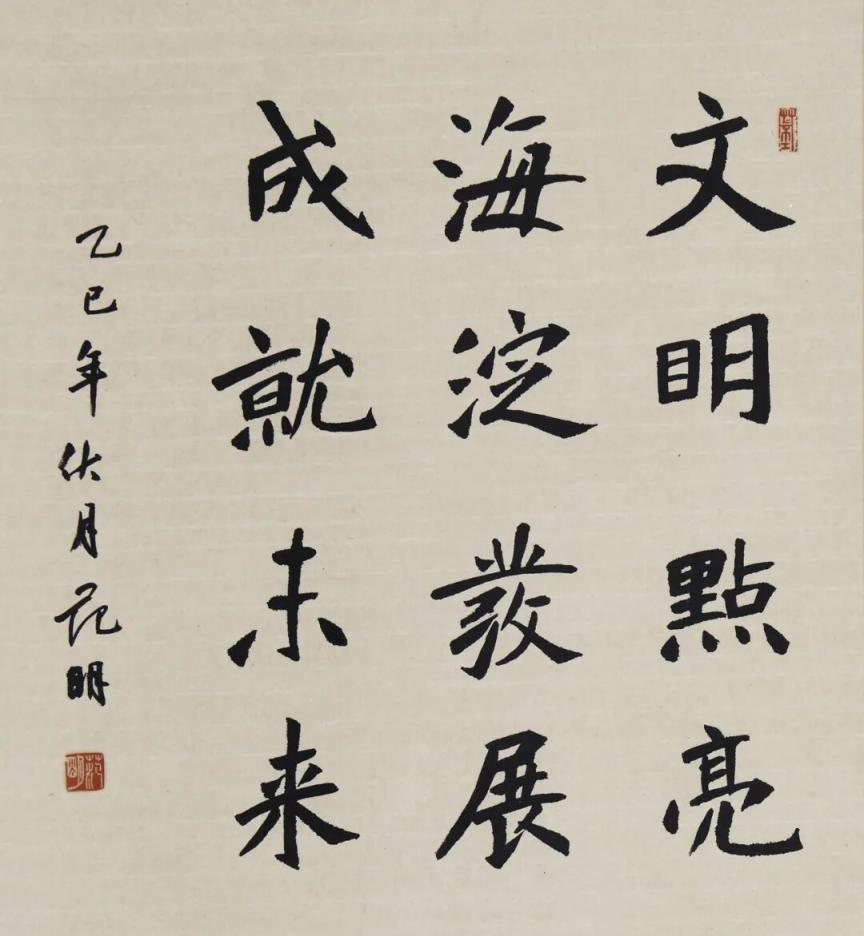 文明點亮
海淀發展
成就未来
乙巳年伏月范明
范明